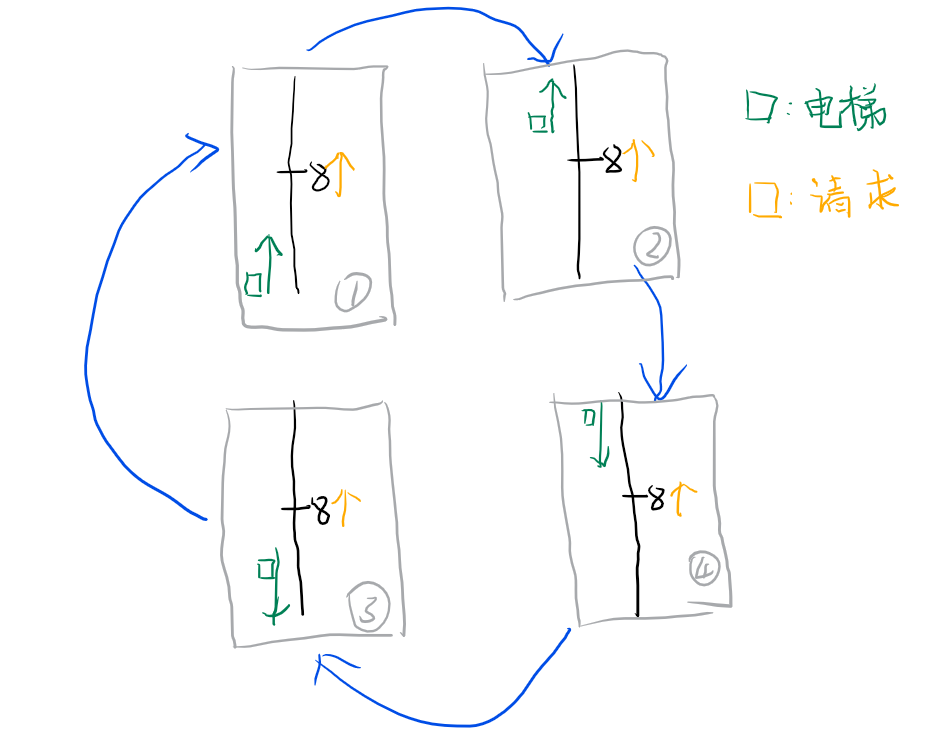 8
①
8
②
□:电梯
□:请求
8
③
8
④